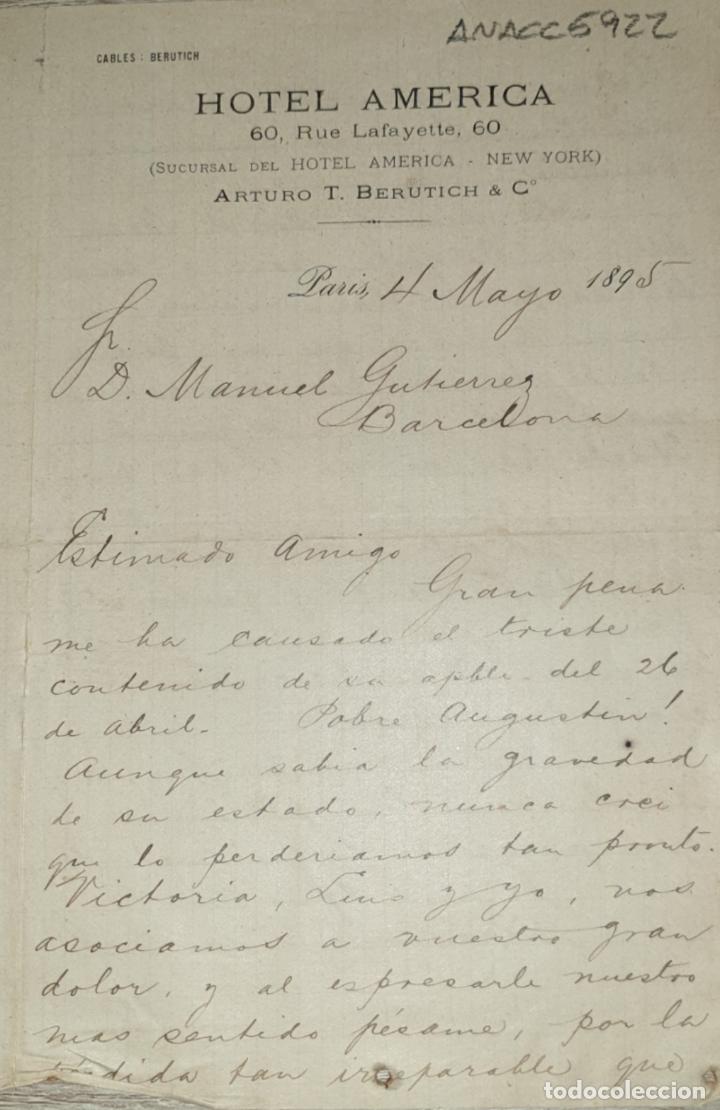 ANACC5922
CABLES : BERUTICH
HOTEL AMERICA
60, Rue Lafayette, 60
(SUCURSAL DEL HOTEL AMERICA - NEW YORK)
ARTURO T. BERUTICH & Cº
Paris, 4 Mayo 1895
Sr.
D. Manuel Gutierrez
Barcelona
Estimado Amigo
Gran pena
me ha causado el triste
contenido de su apble. del 26
de abril. Pobre Augustin!
Aunque sabia la gravedad
de su estado, nunca crei
que lo perderiamos tan pronto.
Victoria, Luis y yo, nos
asociamos a vuestro gran
dolor, y al espresarle nuestro
mas sentido pésame, por la
pérdida tan irreparable que
todocoleccion